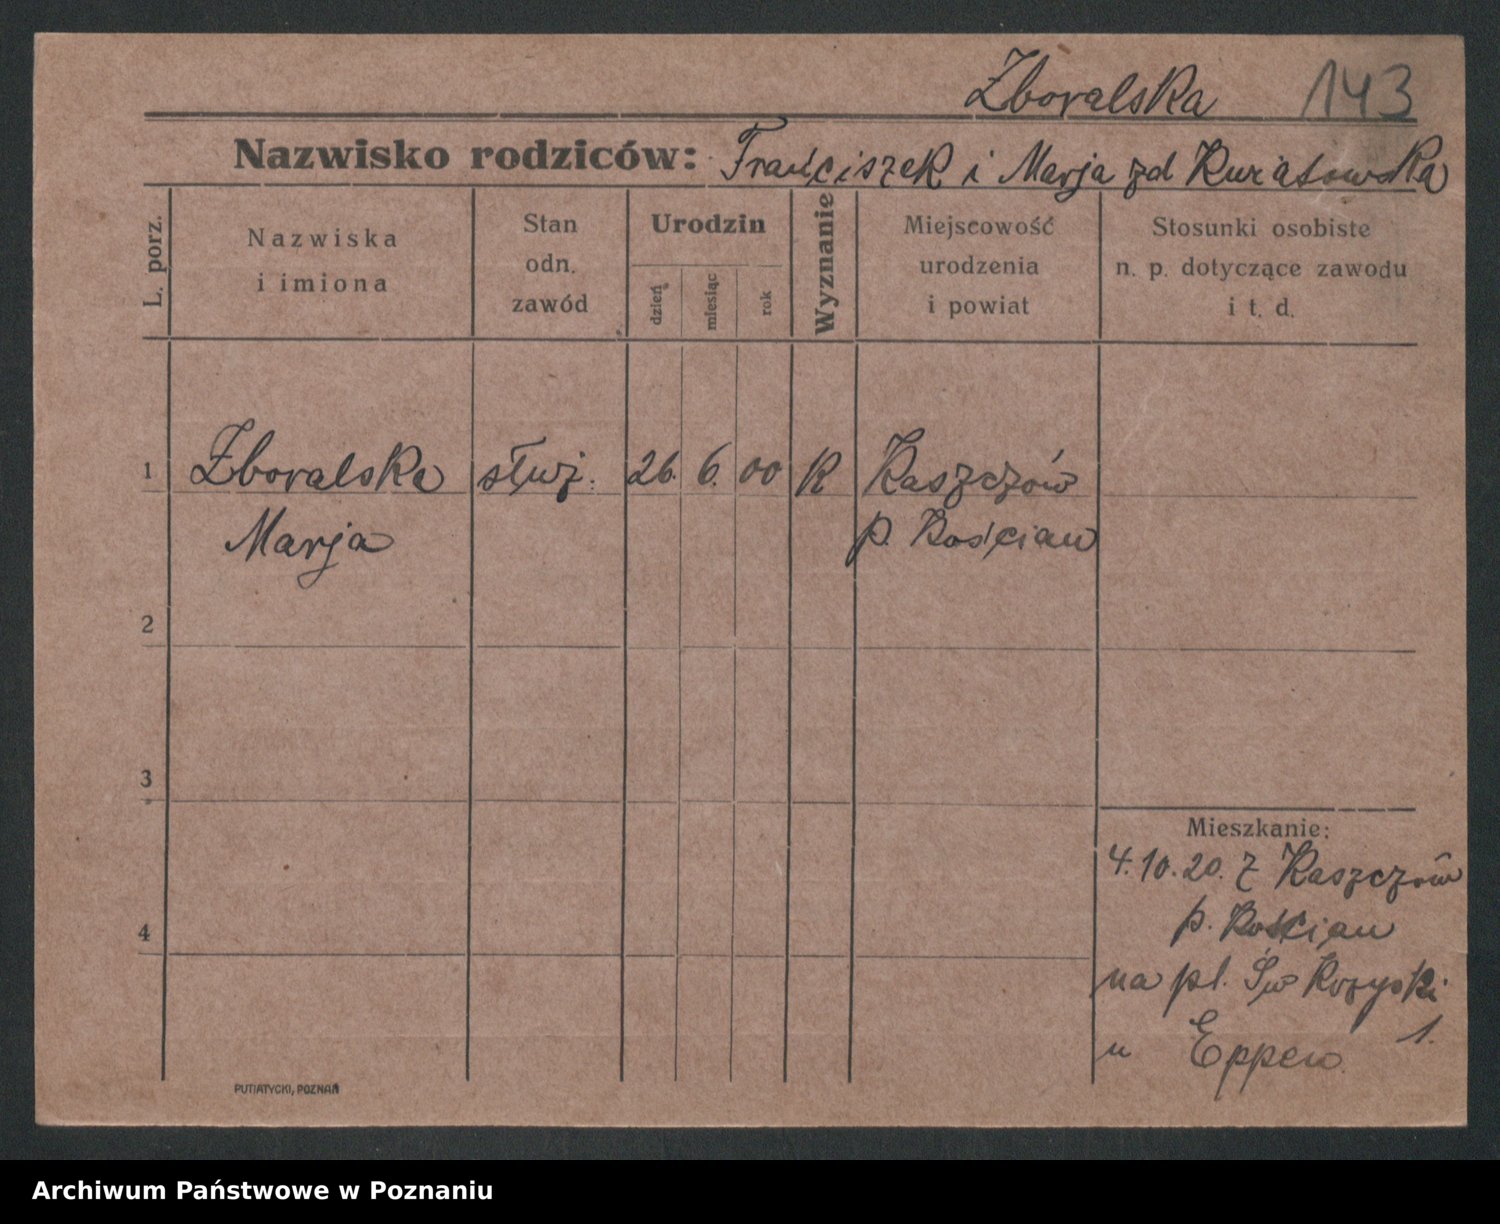 Zboralska 143
Nazwisko rodziców: Franciszek i Marja zd Kuratowska
L. porz.
Nazwiska
i imiona
Stan
odn.
zawód
Urodzin
dzień
miesiąc
rok
Wyznanie
Miejscowość
urodzenia
i powiat
Stosunki osobiste
n. p. dotyczące zawodu
i t. d.
1 Zboralska służ. 26. 6. 00 K Kaszczów
Marja p. Kościan
2
3
Mieszkanie:
4.10.20. z Kaszczów
4
p. Kościan
na pl. Św Krzyski
1.
u Eppen
PUTIATYCKI, POZNAŃ
Archiwum Państwowe w Poznaniu